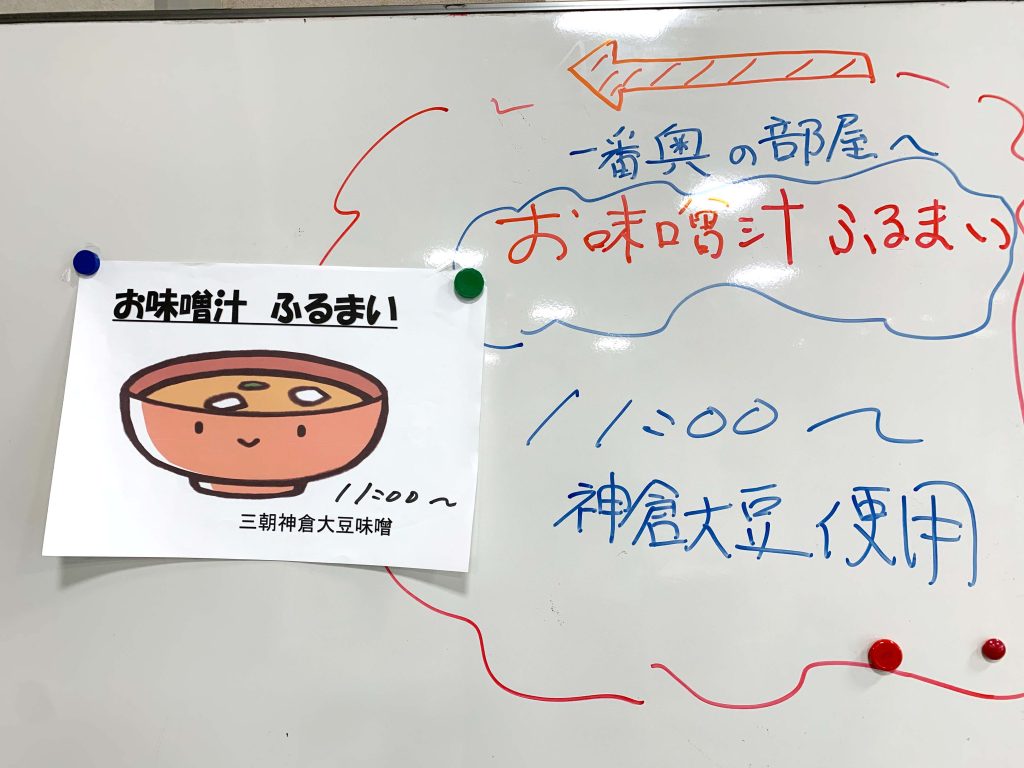 お味噌汁 ふるまい
11:00～
三朝神倉大豆味噌
一番奥の部屋へ
お味噌汁 ふるまい
11:00～
神倉大豆使用